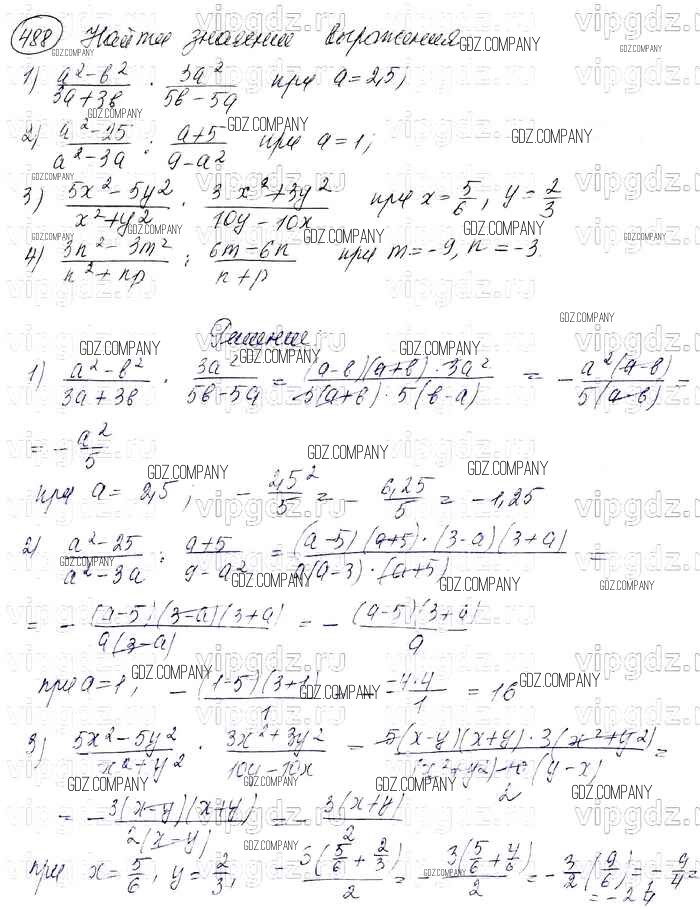 488 Найти значение выражения
1) \frac{a^2-b^2}{3a+3b} \cdot \frac{3a^2}{5b-5a} при a=2,5;
2) \frac{a^2-25}{a^2-3a} : \frac{a+5}{9-a^2} при a=1;
3) \frac{5x^2-5y^2}{x^2+y^2} \cdot \frac{3x^2+3y^2}{10y-10x} при x=\frac{5}{6}, y=\frac{2}{3}
4) \frac{3n^2-3m^2}{n^2+np} : \frac{6m-6n}{n+p} при m=-9, n=-3
Решение
1) \frac{a^2-b^2}{3a+3b} \cdot \frac{3a^2}{5b-5a} = \frac{(a-b)(a+b) \cdot 3a^2}{3(a+b) \cdot 5(b-a)} = -\frac{a^2(a-b)}{5(a-b)} =
= -\frac{a^2}{5}
при a=2,5; -\frac{2,5^2}{5} = -\frac{6,25}{5} = -1,25
2) \frac{a^2-25}{a^2-3a} : \frac{a+5}{9-a^2} = \frac{(a-5)(a+5) \cdot (3-a)(3+a)}{a(a-3) \cdot (a+5)} =
= -\frac{(a-5)(3-a)(3+a)}{a(3-a)} = -\frac{(a-5)(3+a)}{a}
при a=1, -\frac{(1-5)(3+1)}{1} - \frac{-4 \cdot 4}{1} = 16
3) \frac{5x^2-5y^2}{x^2+y^2} \cdot \frac{3x^2+3y^2}{10y-10x} = \frac{5(x-y)(x+y) \cdot 3(x^2+y^2)}{(x^2+y^2) \cdot 10(y-x)} =
2
= -\frac{3(x-y)(x+y)}{2(x-y)} = -\frac{3(x+y)}{2}
при x=\frac{5}{6}, y=\frac{2}{3}, -\frac{3(\frac{5}{6}+\frac{2}{3})}{2} = -\frac{3(\frac{5}{6}+\frac{4}{6})}{2} = -\frac{3}{2}(\frac{9}{6}) = -\frac{9}{4} =
= -2\frac{1}{4}
GDZ.COMPANY
vipgdz.ru